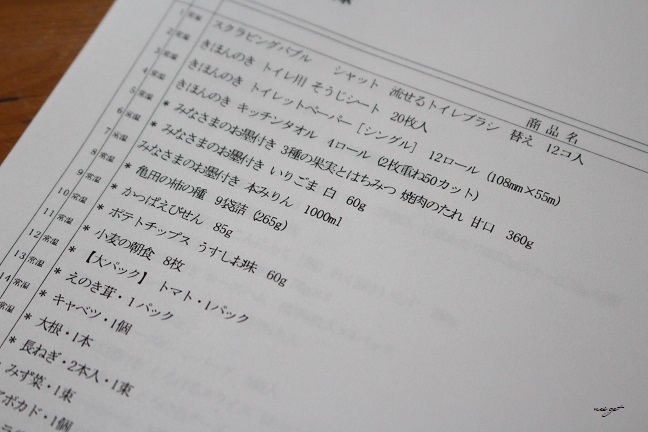 商品名
1 常温 スクラビングバブル シャット 流せるトイレブラシ 替え 12コ入
2 常温 きほんのき トイレ用 そうじシート 20枚入
3 常温 きほんのき トイレットペーパー [シングル] 12ロール (108mm×55m)
4 常温 きほんのき キッチンタオル 4ロール (2枚重ね50カット)
5 常温 * みなさまのお墨付き 3種の果実とはちみつ 焼肉のたれ 甘口 360g
6 常温 * みなさまのお墨付き いりごま 白 60g
7 常温 みなさまのお墨付き 本みりん 1000ml
8 常温 * 亀田の柿の種 9袋詰 (265g)
9 常温 * かっぱえびせん 85g
10 常温 * ポテトチップス うすしお味 60g
11 常温 * 小麦の朝食 8枚
12 常温 * 【大パック】 トマト・1パック
13 常温 * えのき茸・1パック
14 常温 * キャベツ・1個
常温 * 大根・1本
* 長ねぎ・2本入・1束
みず菜・1束
アボカド・1個